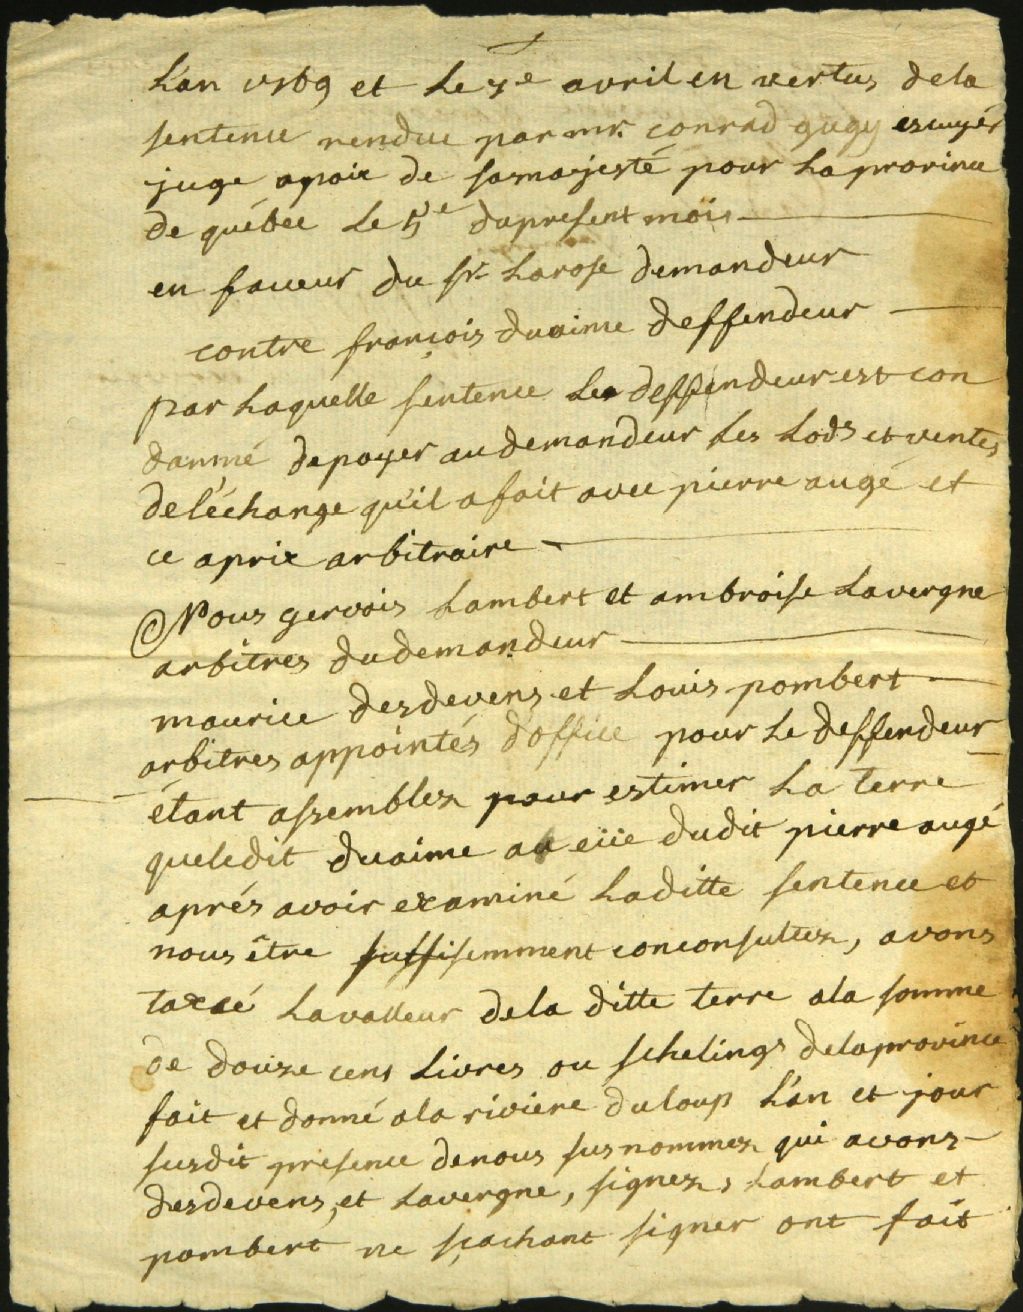 L'an 1769 et Le 7e avril en vertus dela
sentence rendue par mr. conrad gugy escuyér
juge apaix de samajesté pour La province
de québec Le 5e du present mois
en faveur du sr. Larose demandeur
contre francois duaime deffendeur
par Laquelle sentence Le deffendeur est con
damné depayer au demandeur Les Lods et ventes
deléchange qu'il afait avec pierre augé et
ce aprix arbitraire
Nous gervais Lambert et ambroise Lavergne
arbitres dudemandeur
maurice desdevens et Louis pombert
arbitres appointés d'office pour Le deffendeur
étant assemblez pour estimer La terre
queledit duaime a eüe dudit pierre augé
aprés avoir examiné Laditte sentence et
nous être suffisemment conconsultez, avons
taxcé Lavalleur dela ditte terre ala somme
de douze cens Livres ou schelings delaprovince
fait et donné ala riviere duloup L'an et jour
susdit presence denous susnommez qui avons
desdevens, et Lavergne, signez, Lambert et
pombert ne sçachant signer ont fait